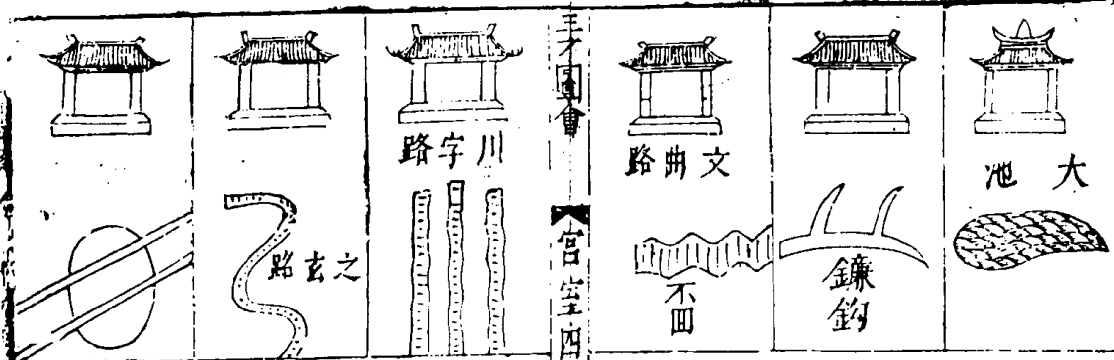 大池
鐮鈎
文曲路
不回
三才圖會
宮室四
川字路
之玄路